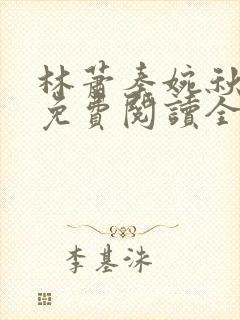 林蕭秦婉秋
免費閱讀全
李基洙